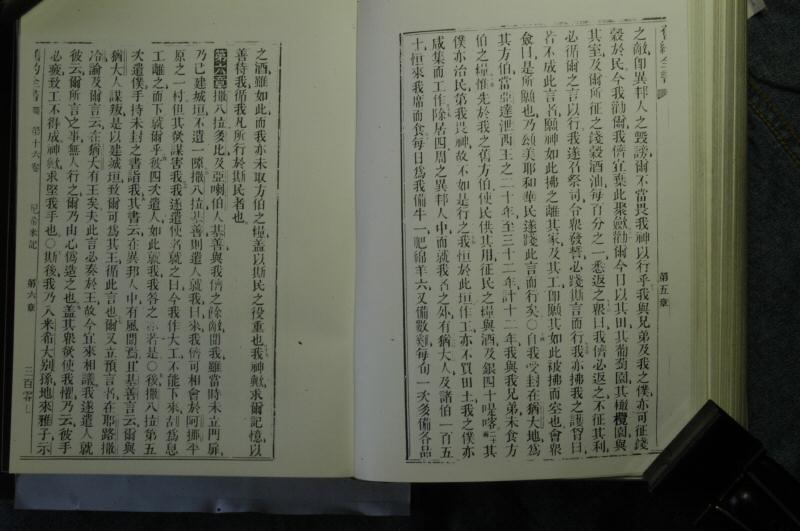 之敵卽異邦人之毀謗爾不當畏我神以行乎我與兄弟及我之僕亦可征錢
穀於民今我勸爾我儕宜棄此聚歛勸爾今日以其田其葡萄園其橄欖園與
其室及爾所征之錢穀酒油每百分之一悉返之衆曰我儕必返之不征其利
必循爾之言以行我遂召祭司令衆發誓必踐斯言而行我亦拂我之謢督曰
若不成此言者願神如此拂之離其家及其工卽願其如此被拂而空也會衆
僉曰是所願也乃頌美耶和華民遂踐此言而行矣〇自我受封在猶大地爲
其方伯當亞達泄西王之二十年至三十二年計十二年我與我兄弟未食方
伯之糧惟先於我之舊方伯使民供其用征民之糧與酒及銀四十㖔喀二十其
僕亦治民第我畏神故不如是行之我恒於此垣作工亦不買田土我之僕亦
咸集而工作除居四周之異邦人中而就我者之外有猶大人及諸伯一百五
十恒來我席而食每日爲我備牛一肥綿羊六又備數雞每旬一次多備各品
第五章
之酒雖如此而我亦未取方伯之糧蓋以斯民之役重也我神歟求爾記憶以
善待我循我凡所行於斯民者也
第六章撒八拉多比及亞喇伯人基善與我儕之餘敵聞我雖當時未立門扉
乃已建城垣不遺一隙撒八拉基善則遣人就我曰來我儕可相會於阿挪平
原之一村但其欲謀害我我遂遣使者就之曰今我作大工不能下來胡爲息
工離之而下就爾乎彼四次遣人如此就我我答之亦若是〇後撒八拉第五
次遣僕手持未封之書詣我其書云在異邦人中有風聞焉且基善言云爾與
猶大人謀叛是以建城垣致爾可爲其王循此言也爾又立預言者在耶路撒
冷論及爾言云在猶大有王矣夫此言必奏於王故今宜來相議我遂遣人就
彼云爾所言之事無人行之爾乃由心僞造之也蓋其衆欲使我懼乃云彼手
必疲致工不得成神歟求堅我手也〇斯後我乃入米希大別孫地來雅子示
第十六卷 尼希米記 第六章 三百零七